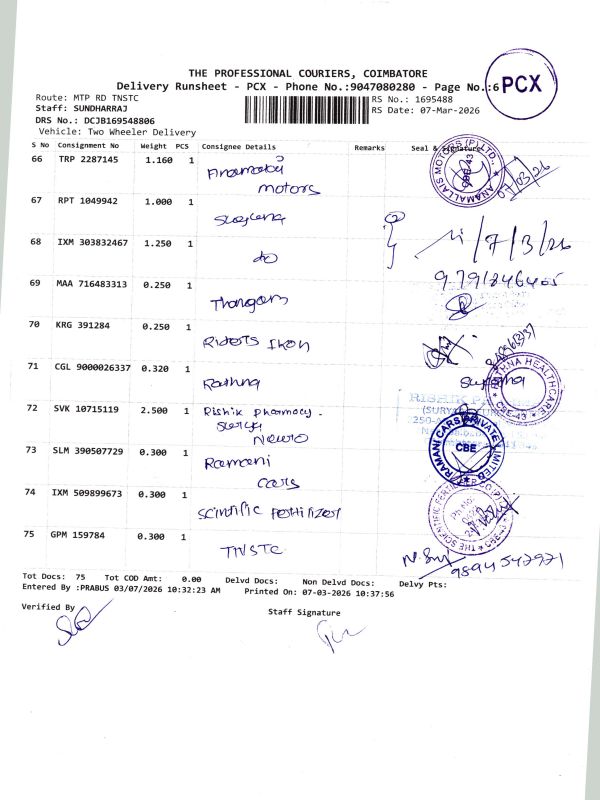 THE PROFESSIONAL COURIERS, COIMBATORE
Delivery Runsheet - PCX - Phone No.:9047080280 - Page No.:6
PCX
Route: MTP RD TNSTC
RS No.: 1695488
Staff: SUNDHARRAJ
RS Date: 07-Mar-2026
DRS No.: DCJB169548806
Vehicle: Two Wheeler Delivery
S No Consignment No Weight PCS Consignee Details Remarks Seal & Signature
66 TRP 2287145 1.160 1 motors
ANAMALLAIS MOTORS (P) LTD. CBE-43
07/03/26
67 RPT 1049942 1.000 1
68 IXM 303832467 1.250 1 do
/7/3/26
69 MAA 716483313 0.250 1 Thangam
70 KRG 391284 0.250 1
71 CGL 9000026337 0.320 1 Rathna
RATHNA HEALTHCARE CBE-43
72 SVK 10715119 2.500 1 Rishik pharmacy.
Surya
Neuro
73 SLM 390507729 0.300 1 Ramani
cars
RAMANI CARS PRIVATE LIMITED CBE
74 IXM 509899673 0.300 1 Scintific Fertilizer
75 GPM 159784 0.300 1 TNSTC
9894542921
Tot Docs: 75 Tot COD Amt: 0.00 Delvd Docs: Non Delvd Docs: Delvy Pts:
Entered By :PRABUS 03/07/2026 10:32:23 AM Printed On: 07-03-2026 10:37:56
Verified By
Staff Signature